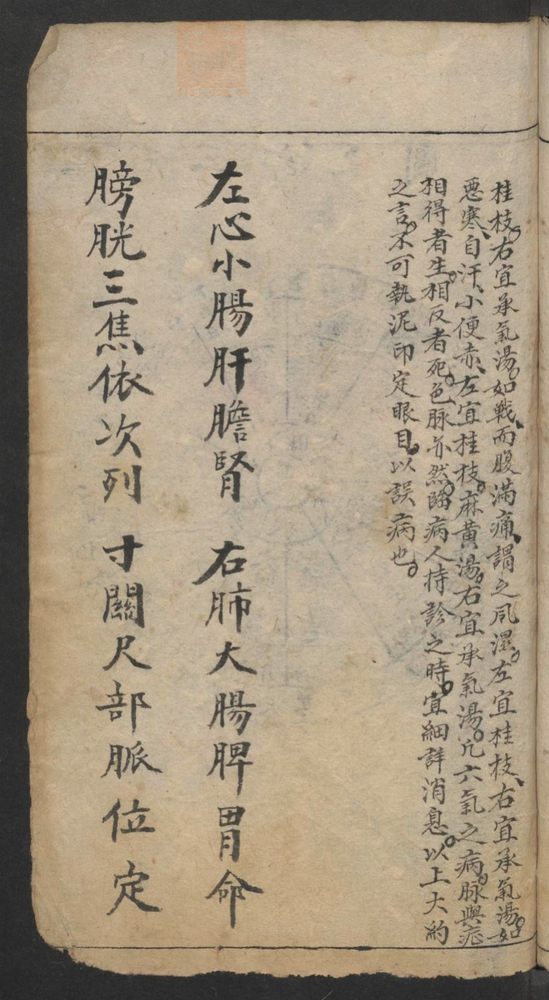 桂枝、右宜承氣湯。如戰而腹滿痛、謂之風濕。左宜桂枝、右宜承氣湯。如
惡寒、自汗、小便赤、左宜桂枝。麻黃湯。右宜承氣湯。凡六氣之病。脉與症
相得者生。相反者死。色脉亦然。臨病人持診之時。宜細詳消息。以上大約
之言。不可執泥印定眼目。以誤病也。
左心小腸肝膽腎　右肺大腸脾胃命
膀胱三焦依次列　寸關尺部脈位定